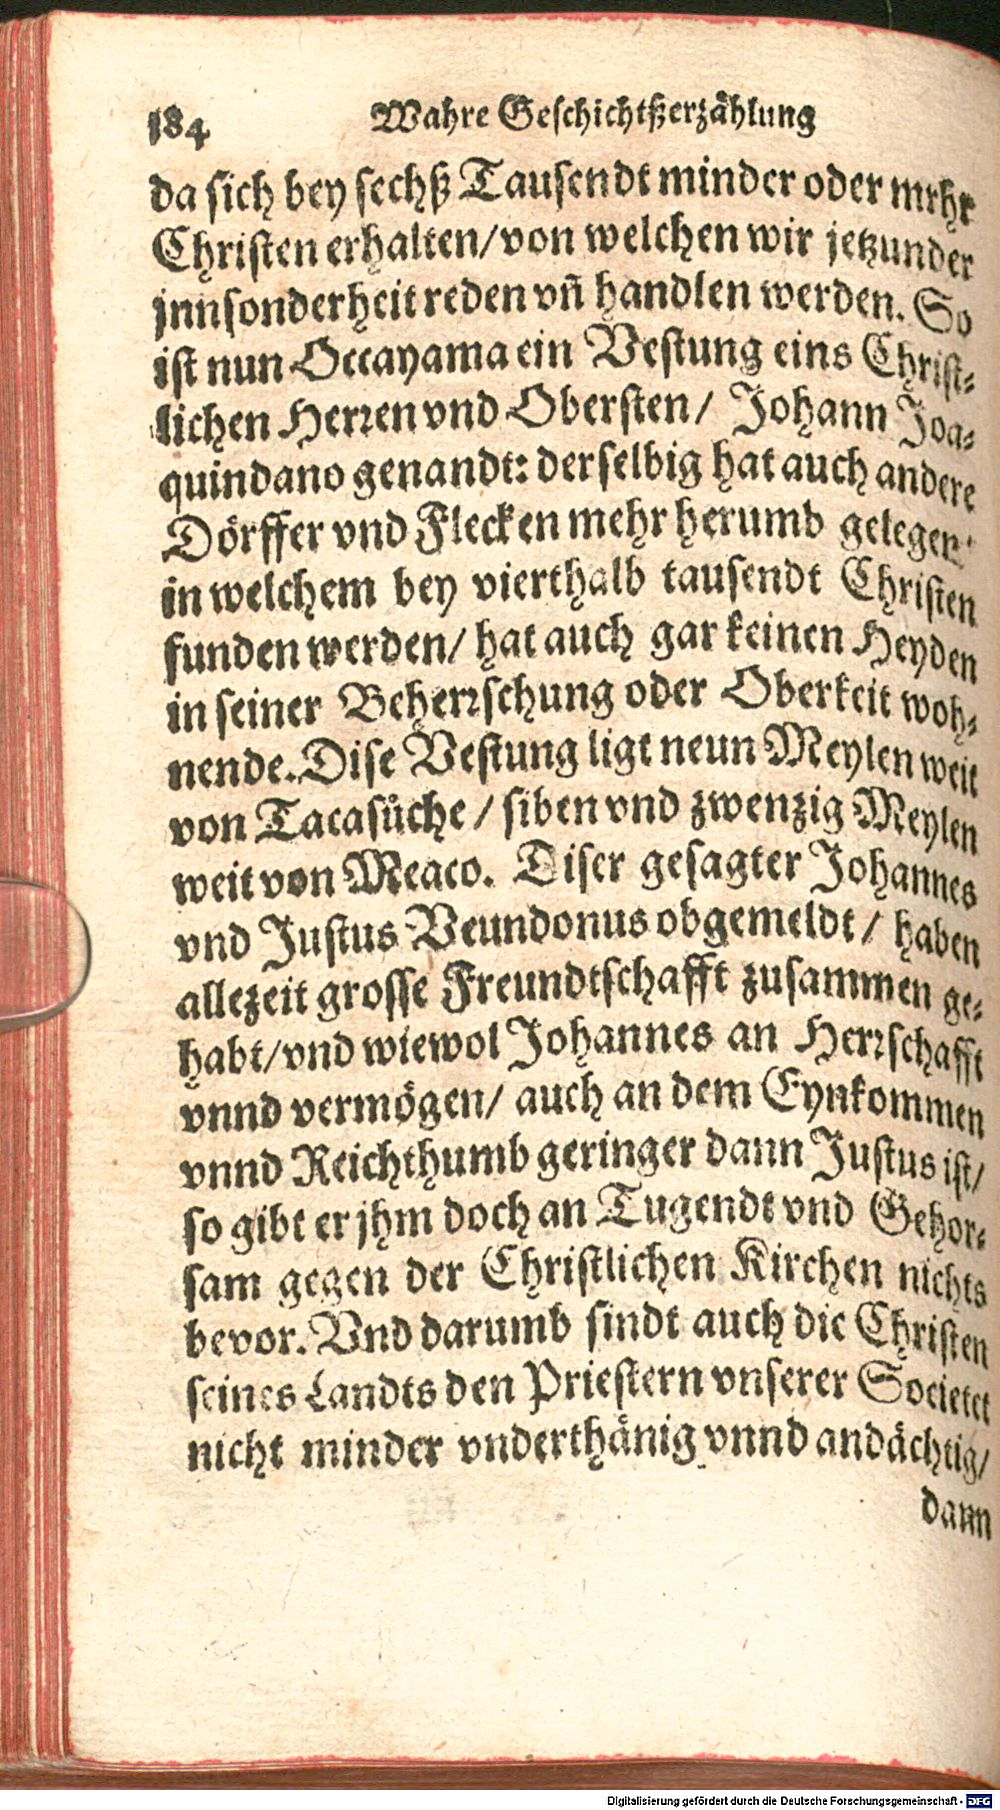 184 Wahre Geschichtßerzählung
da sich bey sechß Tausendt minder oder mrhr
Christen erhalten/von welchen wir jetzunder
jnnsonderheit reden vñ handlen werden. So
ist nun Occayama ein Vestung eins Christ-
lichen Herren vnd Obersten/ Johann Joa-
quindano genandt: derselbig hat auch andere
Dörffer vnd Flecken mehr herumb gelegen
in welchem bey vierthalb tausendt Christen
funden werden/ hat auch gar keinen Heyden
in seiner Beherrschung oder Oberkeit woh-
nende. Dise Vestung ligt neun Meylen weit
von Tacasůche / siben vnd zwenzig Meylen
weit von Meaco. Diser gesagter Johannes
vnd Justus Veundonus obgemeldt / haben
allezeit grosse Freundtschafft zusammen ge-
habt/vnd wiewol Johannes an Herrschafft
vnnd vermögen/ auch an dem Eynkommen
vnnd Reichthumb geringer dann Justus ist/
so gibt er jhm doch an Tugendt vnd Gehor-
sam gegen der Christlichen Kirchen nichts
bevor. Vnd darumb sindt auch die Christen
seines Landts den Priestern vnserer Societet
nicht minder vnderthänig vnnd andächtig/
dann
Digitalisierung gefördert durch die Deutsche Forschungsgemeinschaft - DFG